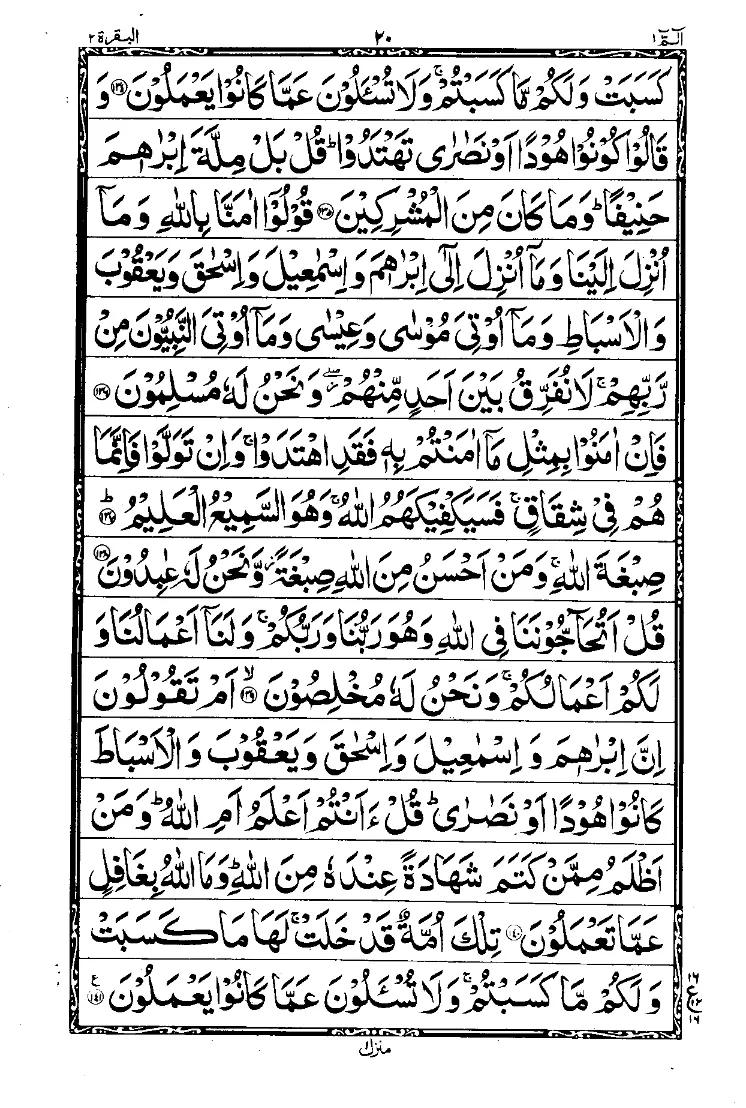 الٓمّٓ ١ ٢٠ البقرة ٢
كَسَبَتْ وَلَكُمْ مَّا كَسَبْتُمْ ۚ وَلَا تُسْـَٔلُوْنَ عَمَّا كَانُوْا يَعْمَلُوْنَ ﴿١٣٤﴾ وَ
قَالُوْا كُوْنُوْا هُوْدًا اَوْ نَصٰرٰى تَهْتَدُوْا ؕ قُلْ بَلْ مِلَّةَ اِبْرٰهٖمَ
حَنِيْفًا ؕ وَمَا كَانَ مِنَ الْمُشْرِكِيْنَ ﴿١٣٥﴾ قُوْلُوْٓا اٰمَنَّا بِاللّٰهِ وَمَآ
اُنْزِلَ اِلَيْنَا وَمَآ اُنْزِلَ اِلٰٓى اِبْرٰهٖمَ وَاِسْمٰعِيْلَ وَاِسْحٰقَ وَيَعْقُوْبَ
وَالْاَسْبَاطِ وَمَآ اُوْتِيَ مُوْسٰى وَعِيْسٰى وَمَآ اُوْتِيَ النَّبِيُّوْنَ مِنْ
رَّبِّهِمْ ۚ لَا نُفَرِّقُ بَيْنَ اَحَدٍ مِّنْهُمْ ۖ وَنَحْنُ لَهٗ مُسْلِمُوْنَ ﴿١٣٦﴾
فَاِنْ اٰمَنُوْا بِمِثْلِ مَآ اٰمَنْتُمْ بِهٖ فَقَدِ اهْتَدَوْا ۚ وَاِنْ تَوَلَّوْا فَاِنَّمَا
هُمْ فِيْ شِقَاقٍ ۚ فَسَيَكْفِيْكَهُمُ اللّٰهُ ۚ وَهُوَ السَّمِيْعُ الْعَلِيْمُ ﴿١٣٧﴾ ؕ
صِبْغَةَ اللّٰهِ ۚ وَمَنْ اَحْسَنُ مِنَ اللّٰهِ صِبْغَةً ؗ وَّنَحْنُ لَهٗ عٰبِدُوْنَ ﴿١٣٨﴾
قُلْ اَتُحَآجُّوْنَنَا فِي اللّٰهِ وَهُوَ رَبُّنَا وَرَبُّكُمْ ۚ وَلَنَآ اَعْمَالُنَا وَ
لَكُمْ اَعْمَالُكُمْ ۚ وَنَحْنُ لَهٗ مُخْلِصُوْنَ ﴿١٣٩﴾ ۙ اَمْ تَقُوْلُوْنَ
اِنَّ اِبْرٰهٖمَ وَاِسْمٰعِيْلَ وَاِسْحٰقَ وَيَعْقُوْبَ وَالْاَسْبَاطَ
كَانُوْا هُوْدًا اَوْ نَصٰرٰى ؕ قُلْ ءَاَنْتُمْ اَعْلَمُ اَمِ اللّٰهُ ؕ وَمَنْ
اَظْلَمُ مِمَّنْ كَتَمَ شَهَادَةً عِنْدَهٗ مِنَ اللّٰهِ ؕ وَمَا اللّٰهُ بِغَافِلٍ
عَمَّا تَعْمَلُوْنَ ﴿١٤٠﴾ تِلْكَ اُمَّةٌ قَدْ خَلَتْ ۚ لَهَا مَا كَسَبَتْ
وَلَكُمْ مَّا كَسَبْتُمْ ۚ وَلَا تُسْـَٔلُوْنَ عَمَّا كَانُوْا يَعْمَلُوْنَ ﴿١٤١﴾ ع
١٦
ع
١٦
منزل ١